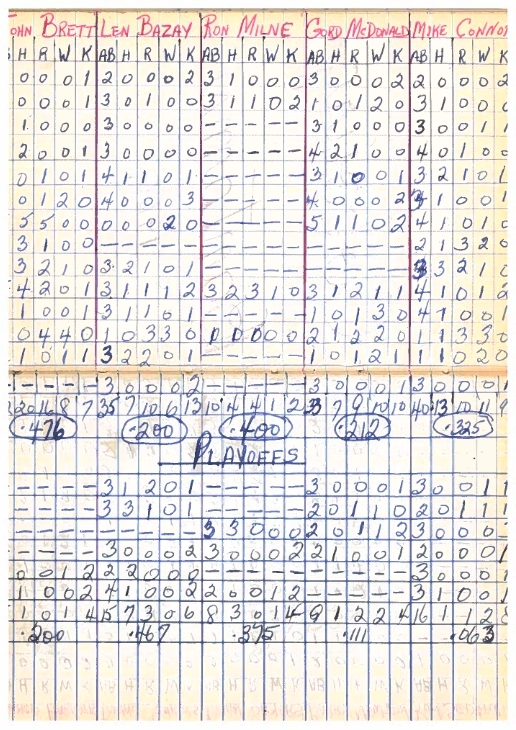 OHN BRETT LEN BAZAY RON MILNE GORD McDONALD MIKE CONNO
H R W K AB H R W K AB H R W K AB H R W K AB H R W K
0 0 0 1 2 0 0 0 2 3 1 0 0 0 3 0 0 0 2 2 0 0 0 2
0 0 0 1 3 0 1 0 0 3 1 1 0 2 1 0 1 2 0 3 1 0 0 0
1 0 0 0 3 0 0 0 0 - - - - - 3 1 0 0 0 3 0 0 1 1
2 0 0 1 3 0 0 0 0 - - - - - 4 2 1 0 0 4 0 1 0 0
0 1 0 1 4 1 1 0 1 - - - - - 3 1 0 0 1 3 2 1 0 1
0 1 2 0 4 0 0 0 3 - - - - - 4 0 0 0 2 1 0 0 1
5 5 0 0 0 0 0 2 0 - - - - - 5 1 1 0 2 4 1 0 1 0
3 1 0 0 - - - - - - - - - - - - - - - 2 1 3 2 0
3 2 1 0 3 2 1 0 1 - - - - - - - - - - 3 3 2 1 0
4 2 0 1 3 1 1 1 2 3 2 3 1 0 3 1 2 1 1 4 1 0 1 2
1 0 0 1 3 1 1 0 1 - - - - - 1 0 1 3 0 4 1 0 0 1
0 4 4 0 1 0 3 3 0 0 0 0 0 0 2 1 2 2 0 1 1 3 3 0
1 0 1 1 3 2 2 0 1 - - - - - 1 0 1 2 1 1 1 0 2 0
- - - - 3 0 0 0 2 - - - - - 3 0 0 0 1 3 0 0 0 1
20 16 8 7 35 7 10 6 13 10 4 4 1 2 33 7 9 10 10 40 13 10 11 9
.476 .200 .400 .212 .325
PLAYOFFS
- - - - 3 1 2 0 1 - - - - - 3 0 0 0 1 3 0 0 1 1
- - - - 3 3 1 0 1 - - - - - 2 0 1 1 0 2 0 1 1 1
- - - - - - - - - 3 3 0 0 0 2 0 1 1 2 3 0 0 0
- - - - 3 0 0 0 2 3 0 0 0 2 2 1 0 0 1 2 0 0 0 1
0 0 1 2 2 2 0 0 0 - - - - - - - - - - 3 0 0 0 1
1 0 0 2 4 1 0 0 2 2 0 0 1 2 - - - - - 3 1 0 0 1
1 0 1 4 15 7 3 0 6 8 3 0 1 4 9 1 2 2 4 16 1 1 2 8
.200 .467 .375 .111 .063